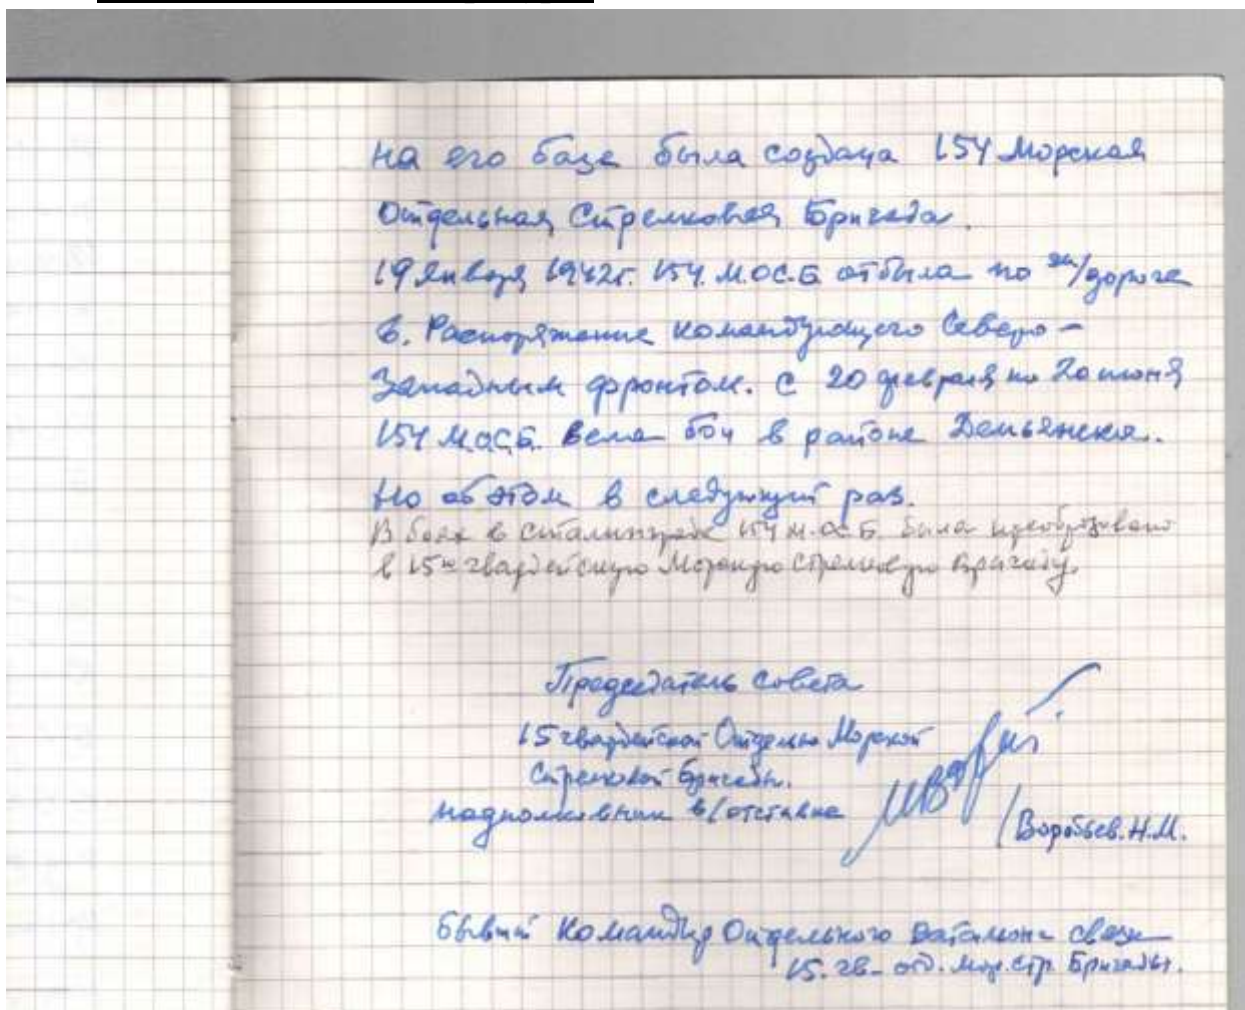 на его базе была создана 154 Морская
Отдельная Стрелковая Бригада.
19 Января 1942г. 154. М.ОС.Б отбыла по жл/дороге
в. Распоряжение командующего Северо-
Западным фронтом. С 20 февраля по 20 июня
154 М.О.С.Б. вела бои в районе Демьянска.
Но об этом в следующий раз.
В боях в Сталинграде 154 М.О.С.Б. была преобразована
в 15ю гвардейскую Морскую Стрелковую Бригаду.
Председатель Совета
15 гвардейской Отдельн Морской
Стрелковой Бригады.
подполковник в/отставке
/Воробьев.Н.М.
бывший Командир Отдельного Батальона связи
15. гв- отд. Мор. стр. Бригады.